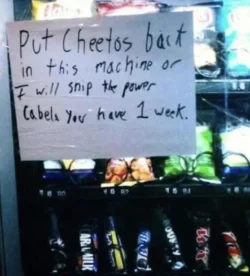 Put Cheetos back
in this machine or
I will snip the power
Cabels you have 1 week.